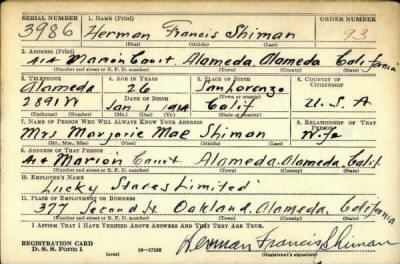 SERIAL NUMBER 1. NAME (Print) ORDER NUMBER
3986 Herman Francis Shiman 93
(First) (Middle) (Last)
2. ADDRESS (Print)
Marion Court, Alameda, Alameda California
(Number and street or R. F. D. number) (Town) (County) (State)
3. TELEPHONE 4. AGE IN YEARS 5. PLACE OF BIRTH 6. COUNTRY OF CITIZENSHIP
Alameda 26 San Lorenzo
DATE OF BIRTH (Town or county)
2891W Jan 1 1914 Calif U.S.A
(Exchange) (Number) (Mo.) (Day) (Yr.) (State or country)
7. NAME OF PERSON WHO WILL ALWAYS KNOW YOUR ADDRESS 8. RELATIONSHIP OF THAT PERSON
Mrs Marjorie Mae Shiman Wife
(Mr., Mrs., Miss) (First) (Middle) (Last)
9. ADDRESS OF THAT PERSON
Marion Court Alameda, Alameda, Calif.
(Number and street or R. F. D. number) (Town) (County) (State)
10. EMPLOYER'S NAME
Lucky Stores Limited
11. PLACE OF EMPLOYMENT OR BUSINESS
377 Second St Oakland, Alameda, California
(Number and street or R. F. D. number) (Town) (County) (State)
I AFFIRM THAT I HAVE VERIFIED ABOVE ANSWERS AND THAT THEY ARE TRUE.
REGISTRATION CARD
D. S. S. Form 1 (over) 16-17105 Herman Francis Shiman
(Registrant's signature)